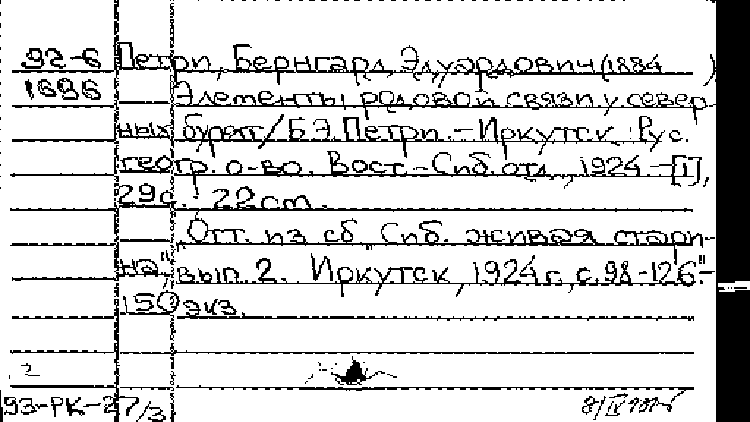 92-6 Петри, Бернгард Эдуардович (1884 )
1696 Элементы родовой связи у север
ных бурят/Б.Э.Петри.-Иркутск: Рус.
геогр. о-во. Вост.-Сиб. отд., 1924.-[1],
29с.; 22cm.
Отт. из сб "Сиб. живая стари-
на", вып. 2. Иркутск, 1924г., с.98-126"-
150 экз.
2
93-РК-27/3